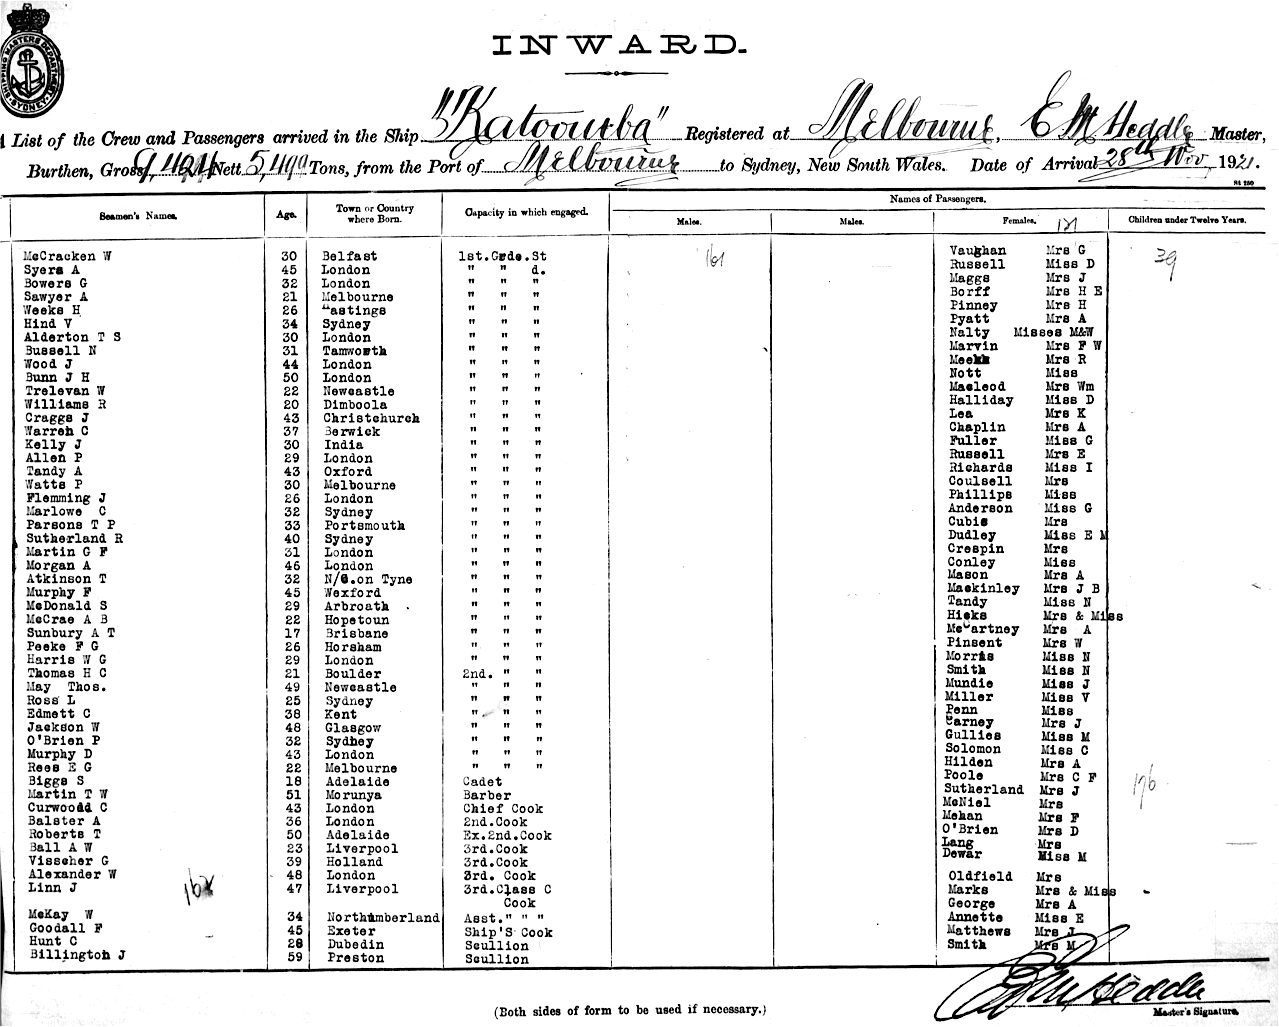 SHIPPING MASTERS DEPARTMENT SYDNEY
INWARD.
List of the Crew and Passengers arrived in the Ship "Katoomba" Registered at Melbourne, E M Heddle Master,
Burthen, Gross 9,424 Nett 5,499 Tons, from the Port of Melbourne to Sydney, New South Wales. Date of Arrival 28th Nov, 1921.
Seamen's Names. Age. Town or Country where Born. Capacity in which engaged. Names of Passengers.
Males. Males. Females. Children under Twelve Years.
McCracken W 30 Belfast 1st.Grde.St
Syers A 45 London " " d.
Bowers G 32 London " " "
Sawyer A 21 Melbourne " " "
Weeks H 26 Hastings " " "
Hind V 34 Sydney " " "
Alderton T S 30 London " " "
Bussell N 31 Tamworth " " "
Wood J 44 London " " "
Bunn J H 50 London " " "
Trelevan W 22 Newcastle " " "
Williams R 20 Dimboola " " "
Craggs J 43 Christchurch " " "
Warren C 37 Berwick " " "
Kelly J 30 India " " "
Allen P 29 London " " "
Tandy A 43 Oxford " " "
Watts P 30 Melbourne " " "
Flemming J 26 London " " "
Marlowe C 32 Sydney " " "
Parsons T P 33 Portsmouth " " "
Sutherland R 40 Sydney " " "
Martin G F 31 London " " "
Morgan A 46 London " " "
Atkinson T 32 N/C.on Tyne " " "
Murphy F 45 Wexford " " "
McDonald S 29 Arbroath " " "
McCrae A B 22 Hopetoun " " "
Sunbury A T 17 Brisbane " " "
Peeke F G 26 Horsham " " "
Harris W G 29 London " " "
Thomas H C 21 Boulder 2nd. " "
May Thos. 49 Newcastle " " "
Ross L 25 Sydney " " "
Edmett C 38 Kent " " "
Jackson W 48 Glasgow " " "
O'Brien P 32 Sydney " " "
Murphy D 43 London " " "
Rees E G 22 Melbourne " " "
Biggs S 18 Adelaide Cadet
Martin T W 51 Morunya Barber
Curwoodd C 43 London Chief Cook
Balster A 36 London 2nd.Cook
Roberts T 50 Adelaide Ex.2nd.Cook
Ball A W 23 Liverpool 3rd.Cook
Visscher G 39 Holland 3rd.Cook
Alexander W 48 London 3rd. Cook
Linn J 47 Liverpool 3rd.Class C
Cook
McKay W 34 Northumberland Asst." " "
Goodall F 45 Exeter Ship'S Cook
Hunt C 28 Dubedin Scullion
Billington J 59 Preston Scullion
162
161
121
Vaughan Mrs G
Russell Miss D
Maggs Mrs J
Borff Mrs H E
Pinney Mrs H
Pyatt Mrs A
Nalty Misses M&W
Marvin Mrs F W
Meek Mrs R
Nott Miss
Macleod Mrs Wm
Halliday Miss D
Lea Mrs K
Chaplin Mrs A
Fuller Miss G
Russell Mrs E
Richards Miss I
Coulsell Mrs
Phillips Miss
Anderson Miss G
Cubis Mrs
Dudley Miss E M
Crespin Mrs
Conley Miss
Mason Mrs A
Mackinley Mrs J B
Tandy Miss N
Hicks Mrs & Miss
McCartney Mrs A
Pinsent Mrs W
Morris Miss N
Smith Miss N
Mundie Miss J
Miller Miss V
Penn Miss
Carney Mrs J
Gullies Miss M
Solomon Miss C
Hilden Mrs A
Poole Mrs C F
Sutherland Mrs J
McNiel Mrs
Mehan Mrs F
O'Brien Mrs D
Lang Mrs
Dewar Miss M
Oldfield Mrs
Marks Mrs & Miss
George Mrs A
Annette Miss E
Matthews Mrs J
Smith Mrs M
39
176
E M Heddle
Master's Signature.
(Both sides of form to be used if necessary.)